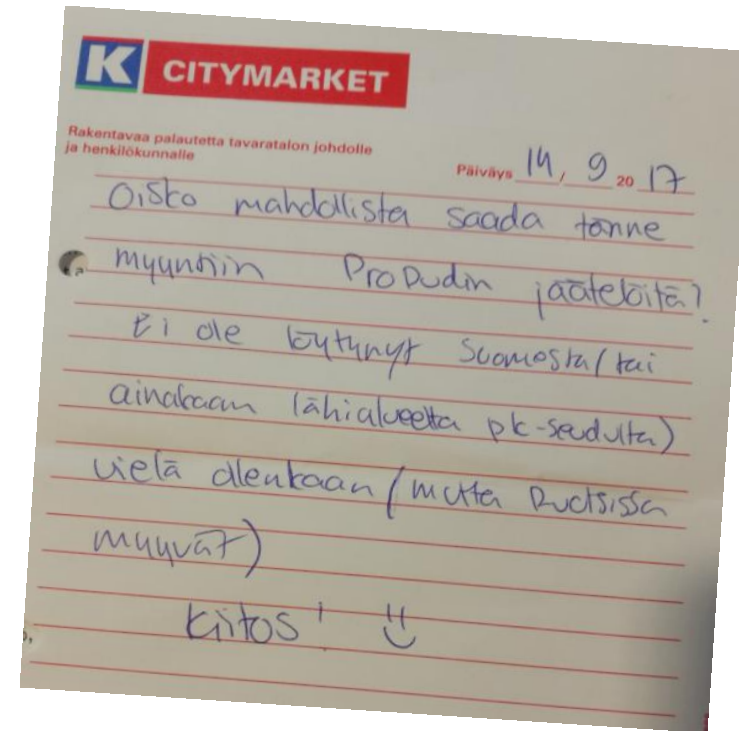 K CITYMARKET
Rakentavaa palautetta tavaratalon johdolle
ja henkilökunnalle
Päiväys 14, 9 20 17
Oisko mahdollista saada tänne
myyntiin ProPudin jäätelöitä?
Ei ole löytynyt Suomesta (tai
ainakaan lähialueelta pk-seudulta)
vielä ollenkaan (mutta Ruotsissa
myyvät)
Kiitos! :)